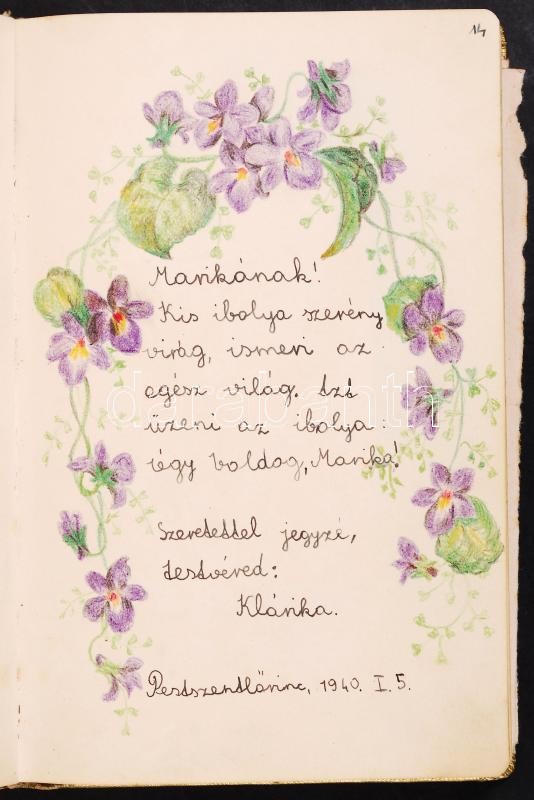 14
Marikának!
Kis ibolya szerény
virág, ismeri az
egész világ. Azt
üzeni az ibolya:
légy boldog, Marika!
Szeretettel jegyzé,
testvéred:
Klárika.
Pestszentlőrinc, 1940. I. 5.
darabanth